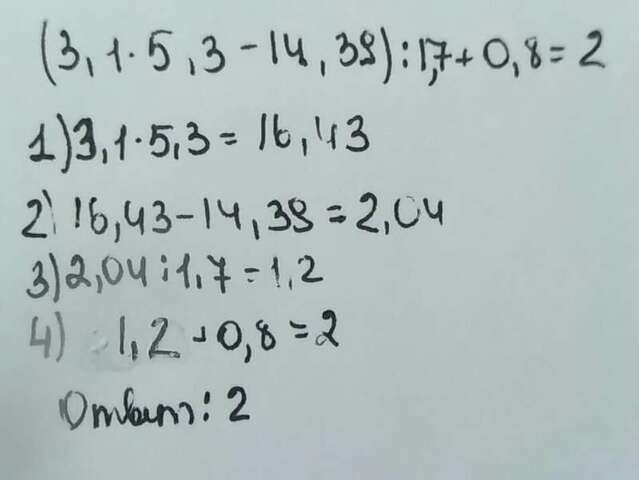 (3,1·5,3-14,39):1,7+0,8=2
1)3,1·5,3=16,43
2) 16,43-14,39=2,04
3)2,04:1,7=1,2
4) 1,2+0,8=2
Ответ: 2